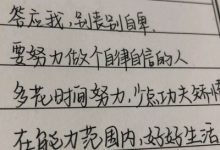 答应我,别丧别自卑,
要努力做个自律自信的人
多花时间努力,少点功夫矫情
在能力范围内,好好生活